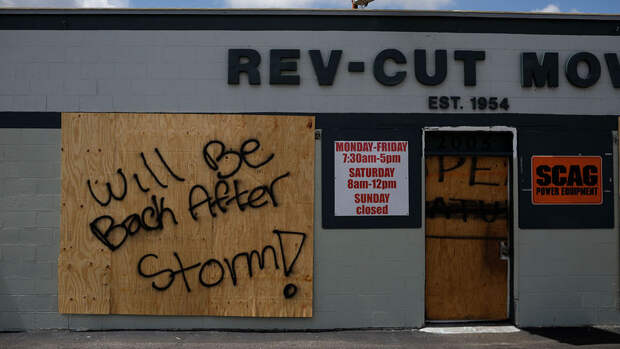 REV-CUT MOW
EST. 1954
Will Be
Back After
Storm!
MONDAY-FRIDAY
7:30am-5pm
SATURDAY
8am-12pm
SUNDAY
closed
2005
PE
ATU
SCAG
POWER EQUIPMENT